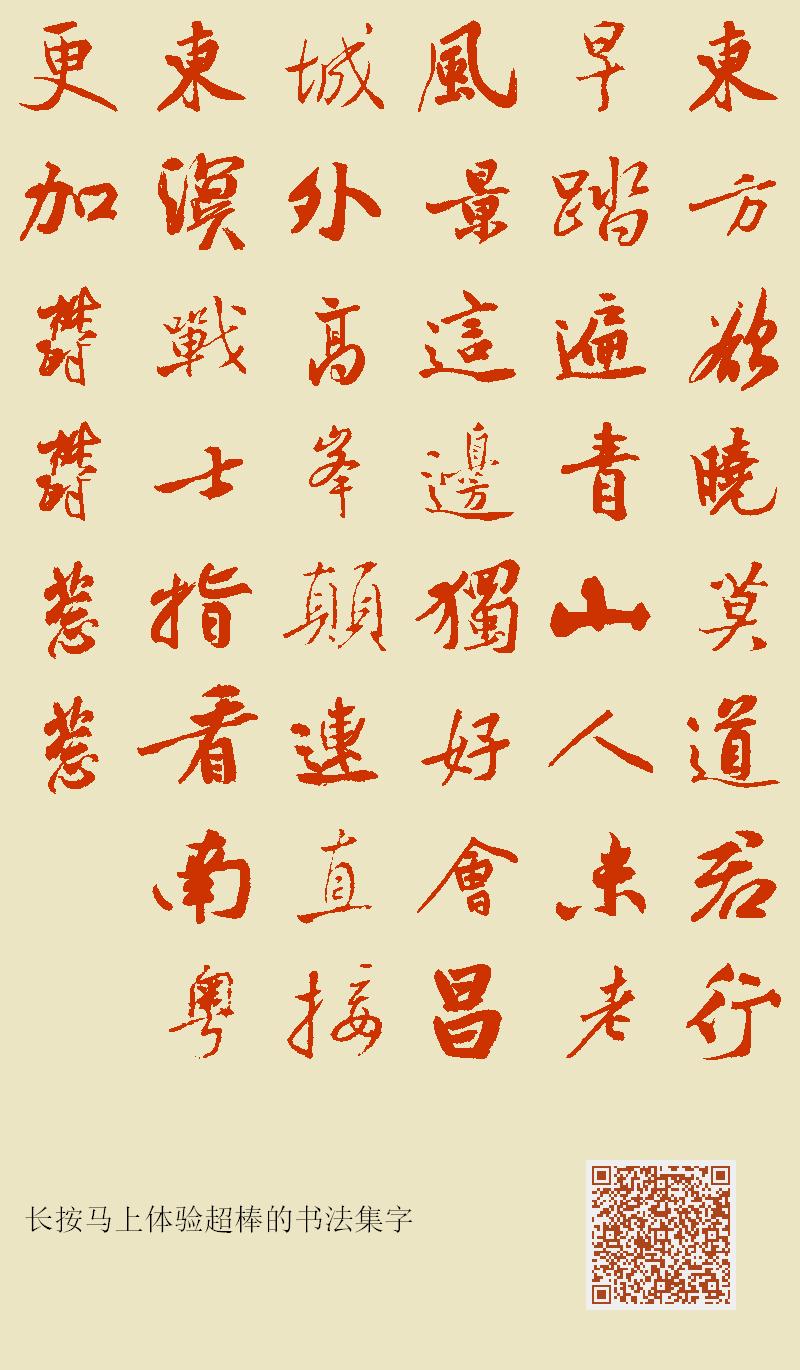 東方欲曉莫道君行
早踏遍青山人未老
風景這邊獨好會昌
城外高峯顛連直接
東溟戰士指看南粤
更加鬱鬱葱葱
长按马上体验超棒的书法集字